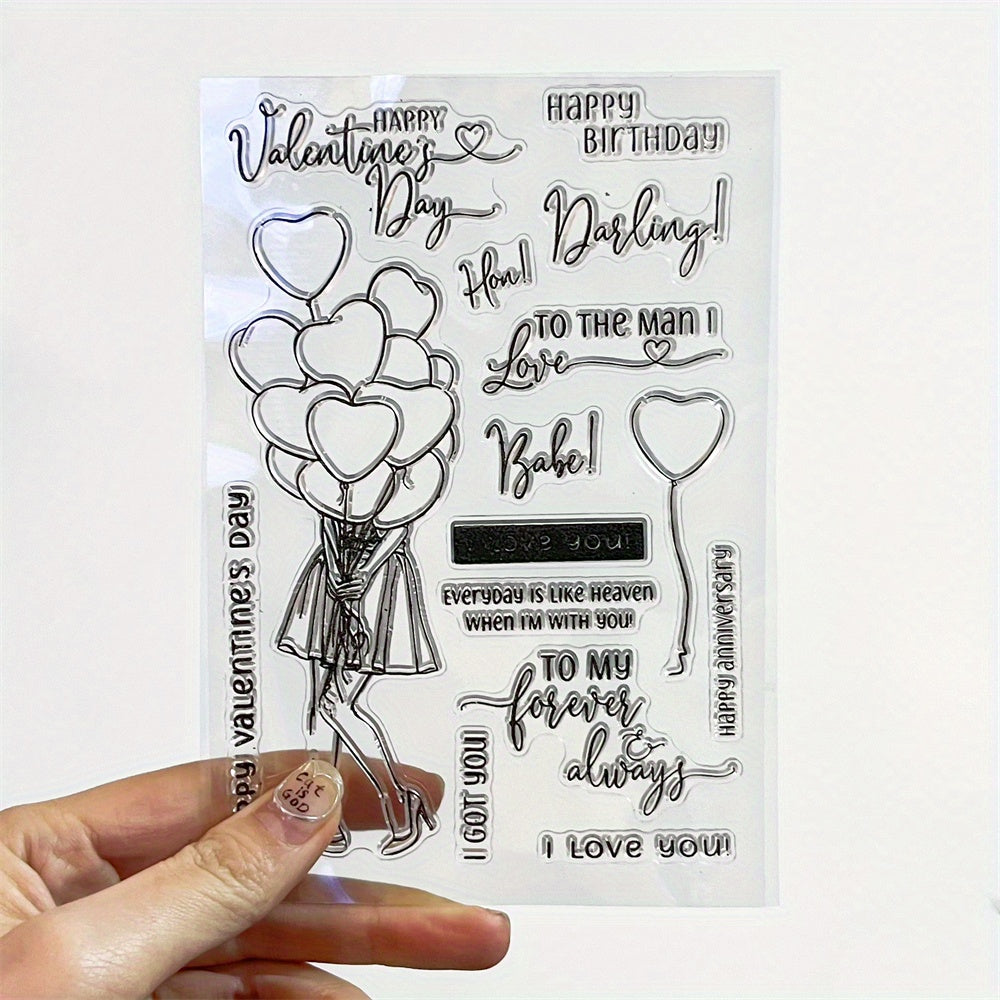 HAPPY
Valentine's
Day
HAPPY
BIRTHDAY
Darling!
Hon!
TO THE MAN I
Love
Babe!
I LOVE YOU!
EVERYDAY IS LIKE HEAVEN
WHEN I'M WITH YOU!
HAPPY ANNIVERSARY
TO MY
forever
always
VALENTINE'S DAY
I GOT YOU
I LOVE YOU!
IS
GOD